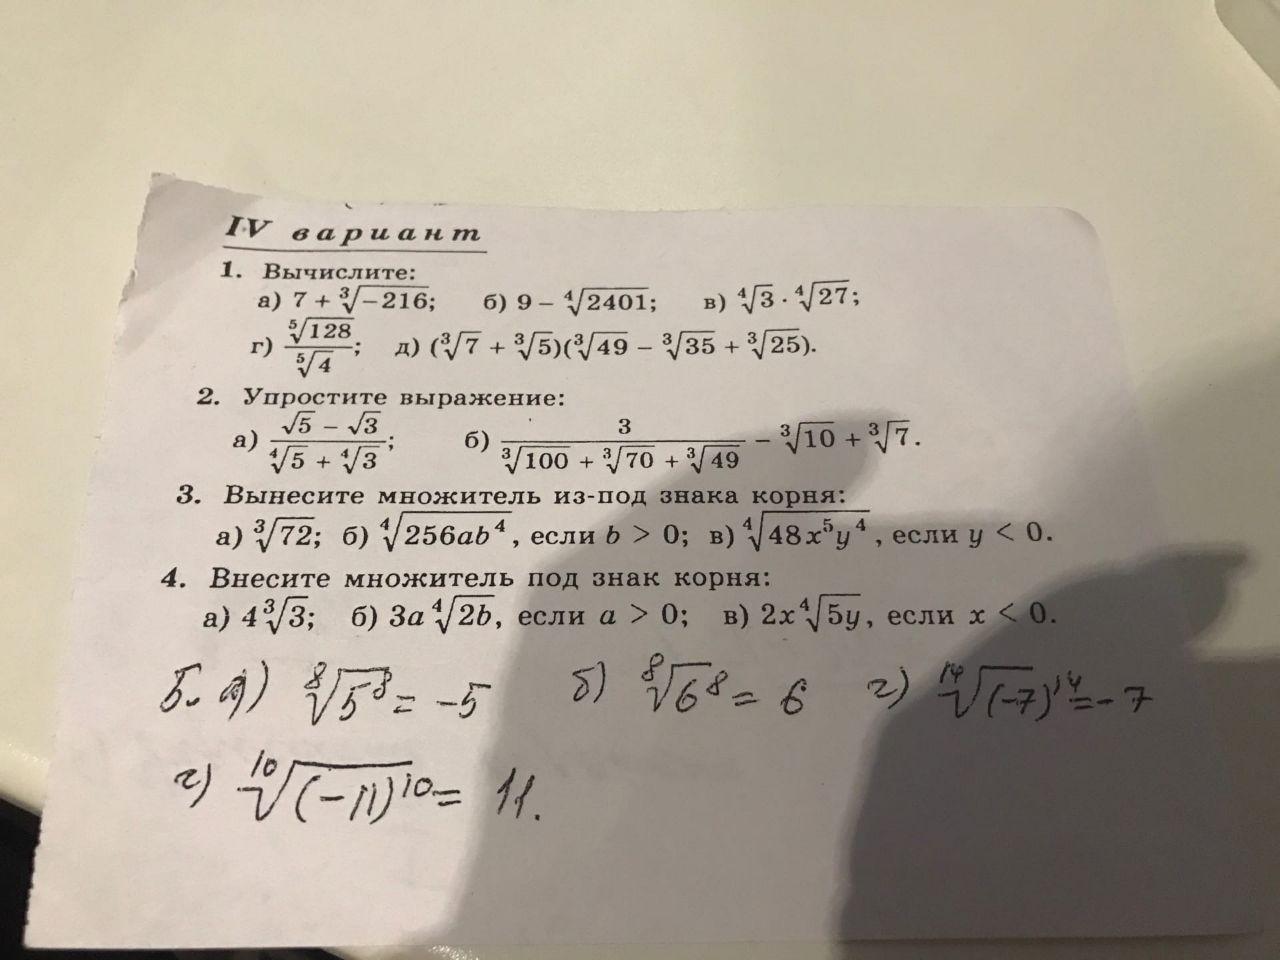 IV вариант
1. Вычислите:
а) 7 + ∛−216; б) 9 − ∜2401; в) ∜3 · ∜27;
г) ⁵√128 / ⁵√4; д) (∛7 + ∛5)(∛49 − ∛35 + ∛25).
2. Упростите выражение:
а) (√5 − √3) / (∜5 + ∜3); б) 3 / (∛100 + ∛70 + ∛49) − ∛10 + ∛7.
3. Вынесите множитель из-под знака корня:
а) ∛72; б) ∜256ab⁴, если b > 0; в) ∜48x⁵y⁴, если y < 0.
4. Внесите множитель под знак корня:
а) 4∛3; б) 3a∜2b, если a > 0; в) 2x∜5y, если x < 0.
5. а) ⁸√5⁸ = −5 б) ⁸√6⁸ = 6 г) ¹⁴√(−7)¹⁴ = −7
г) ¹⁰√(−11)¹⁰ = 11.